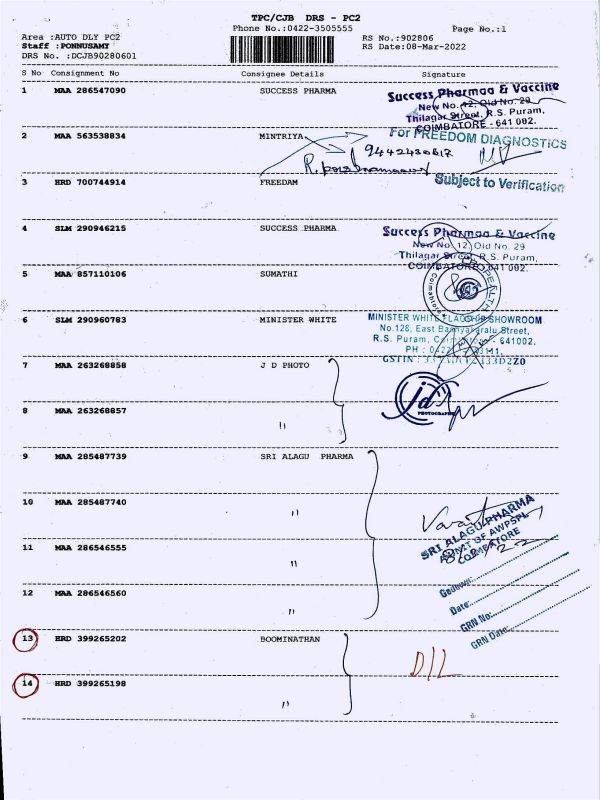 TPC/CJB DRS - PC2
Phone No.:0422-3505555
Page No.:1
Area :AUTO DLY PC2
RS No.:902806
Staff :PONNUSAMY
RS Date:08-Mar-2022
DRS No. :DCJB90280601
S No Consignment No Consignee Details Signature
1 MAA 286547090 SUCCESS PHARMA
Success Pharmaa & Vaccine
New No. 12, Old No. 29
Thilagar Street, R.S. Puram,
COIMBATORE - 641 002.
2 MAA 563538834 MINTRIYA
For FREEDOM DIAGNOSTICS
9442430617
3 HRD 700744914 FREEDAM
Subject to Verification
4 SLM 290946215 SUCCESS PHARMA
Success Pharmaa & Vaccine
New No. 12, Old No. 29
Thilagar Street, R.S. Puram,
COIMBATORE 641 002.
5 MAA 857110106 SUMATHI
6 SLM 290960783 MINISTER WHITE
MINISTER WHITE FLAGSHIP SHOWROOM
No.128, East Street,
R.S. Puram, - 641002.
PH :
GSTIN :
7 MAA 263268858 J D PHOTO
jd
PHOTOGRAPHY
8 MAA 263268857 "
9 MAA 285487739 SRI ALAGU PHARMA
10 MAA 285487740 "
SRI ALAGU PHARMA
OF AWPSPL
COIMBATORE
11 MAA 286546555 "
Godown:
Date:
GRN No:
GRN Date:
12 MAA 286546560 "
13 HRD 399265202 BOOMINATHAN
D/L
14 HRD 399265198 "